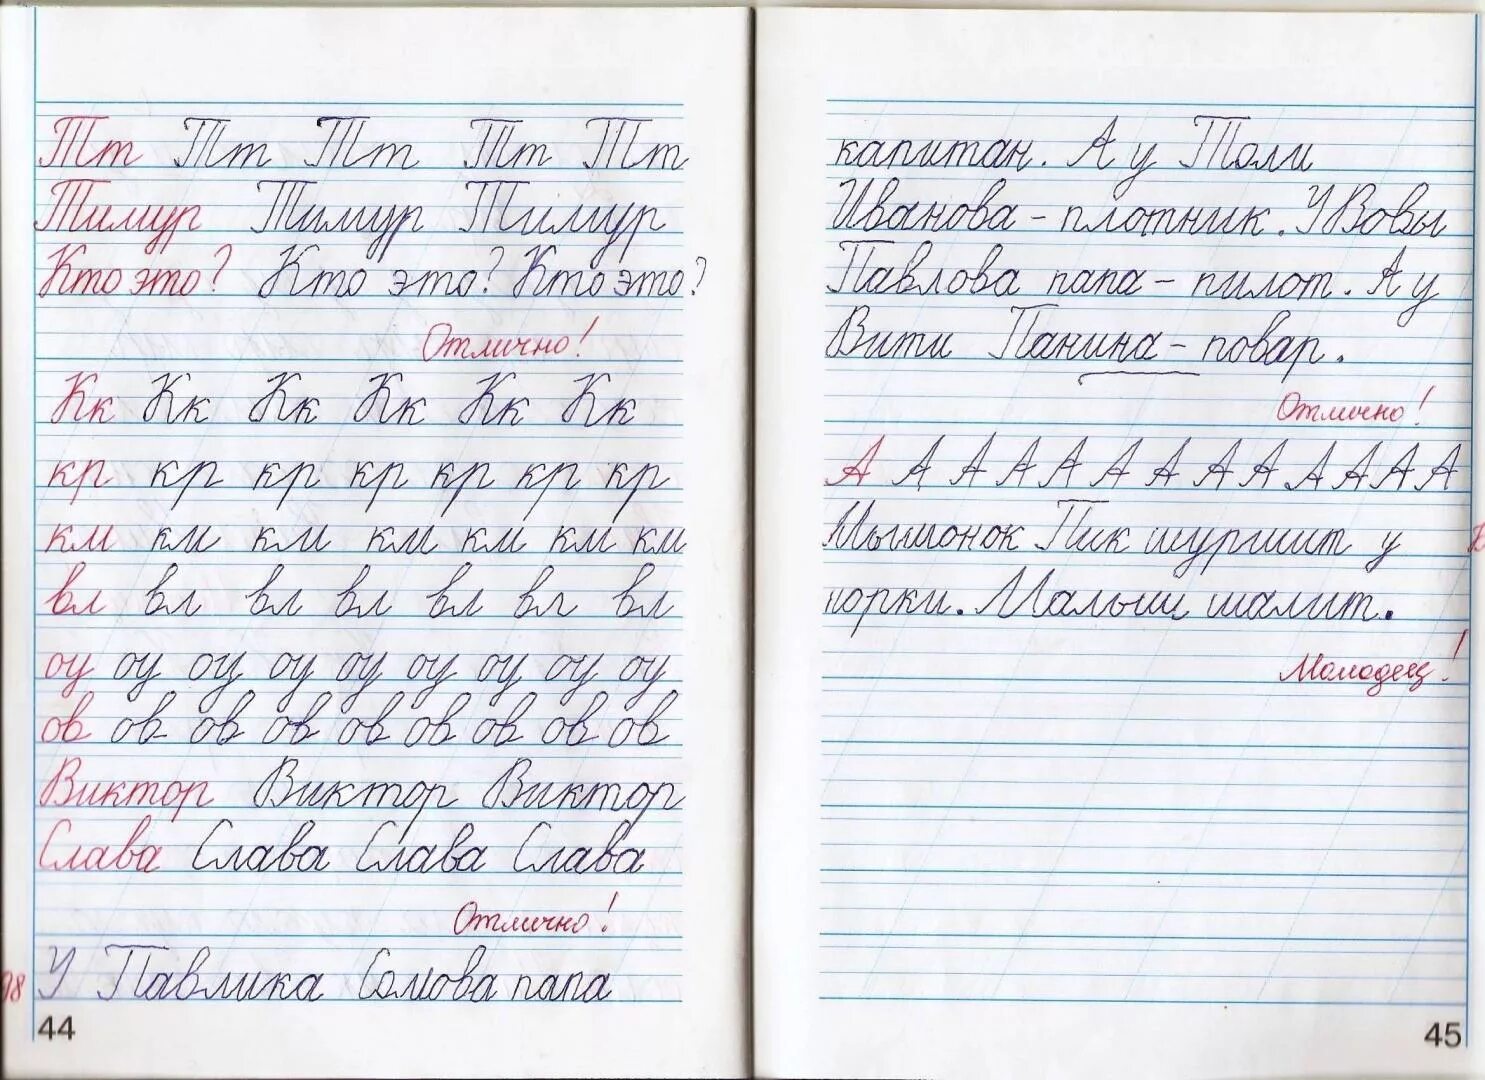 Тт Тт Тт Тт Тт
Тимур Тимур Тимур
Кто это? Кто это? Кто это?
Отлично!
Кк Кк Кк Кк Кк Кк
кр кр кр кр кр кр кр
км км км км км км км
вл вл вл вл вл вл вл
оу оу оу оу оу оу оу оу оу
ов ов ов ов ов ов ов ов ов
Виктор Виктор Виктор
Слава Слава Слава Слава
Отлично!
У Павлика Сомова папа
44
капитан. А у Толи
Иванова - плотник. У Вовы
Павлова папа - пилот. А у
Вити Панина - повар.
Отлично!
А А А А А А А А А А А А А
Мышонок Пик шуршит у
норки. Малыш шалит.
Молодец!
45